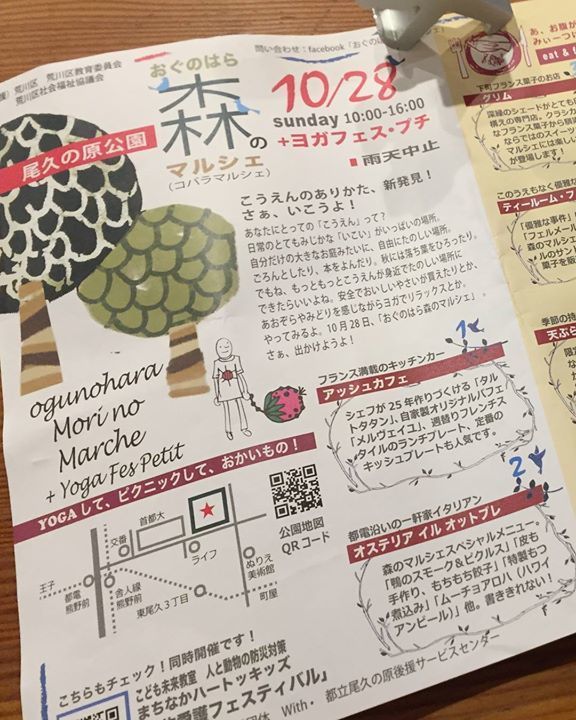 荒川区 荒川区教育委員会
荒川区社会福祉協議会
問い合わせ：facebook「おぐの
おぐのはら
森の
マルシェ
(コバラマルシェ)
尾久の原公園
10/28
sunday 10:00-16:00
+ヨガフェス・プチ
雨天中止
こうえんのありかた、新発見！
さぁ、いこうよ！
あなたにとっての「こうえん」って？
日常のとてもみじかな「いこい」がいっぱいの場所。
自分だけの大きなお庭みたいに、自由にたのしい場所。
ごろんとしたり、本をよんだり。秋には落ち葉をひろったり。
でもね、もっともっとこうえんが身近でたのしい場所に
できたらいいよね。安全でおいしいやさいが買えたりとか、
あおぞらやみどりを感じながらヨガでリラックスとか。
やってみるよ。10月28日、「おぐのはら森のマルシェ」。
さぁ、出かけようよ！
ogunohara
Mori no
Marche
+ Yoga Fes Petit
フランス満載のキッチンカー
アッシュカフェ
シェフが25年作りつづける「タル
トタタン」、自家製オリジナルパフェ
「メルヴェイユ」、週替りフレンチス
タイルのランチプレート、定番の
キッシュプレートも人気です。
YOGAして、ピクニックして、おかいもの！
首都大
交番
ライフ
ぬりえ
美術館
王子
都電
熊野前
舎人線
熊野前
東尾久3丁目
町屋
公園地図
QRコード
都電沿いの一軒家イタリアン
オステリア イル オットブレ
森のマルシェスペシャルメニュー。
「鴨のスモーク＆ピクルス」「皮も
手作り、もちもち餃子」「特製もつ
煮込み」「ムーチョアロハ（ハワイ
アンビール）」他。書ききれない！
こちらもチェック！同時開催です！
こども未来教室 人と動物の防災対策
まちなかハートッキッズ
愛護フェスティバル」
With. 都立尾久の原後援サービスセンター
あ、お腹が
みぃーつけ
eat &
下町フランス菓子のお店
グリム
深緑のシェードがとても
構えの専門店。クラシカ
なフランス菓子から順
ならではのスイーツ
マルシェには楽し
が登場します！
このうえもなく優雅
ティールーム・フ
「優雅な事件」
「フェルメール
森のマルシェ
ルのサン
菓子を販
季節の持
天ぷら
限定